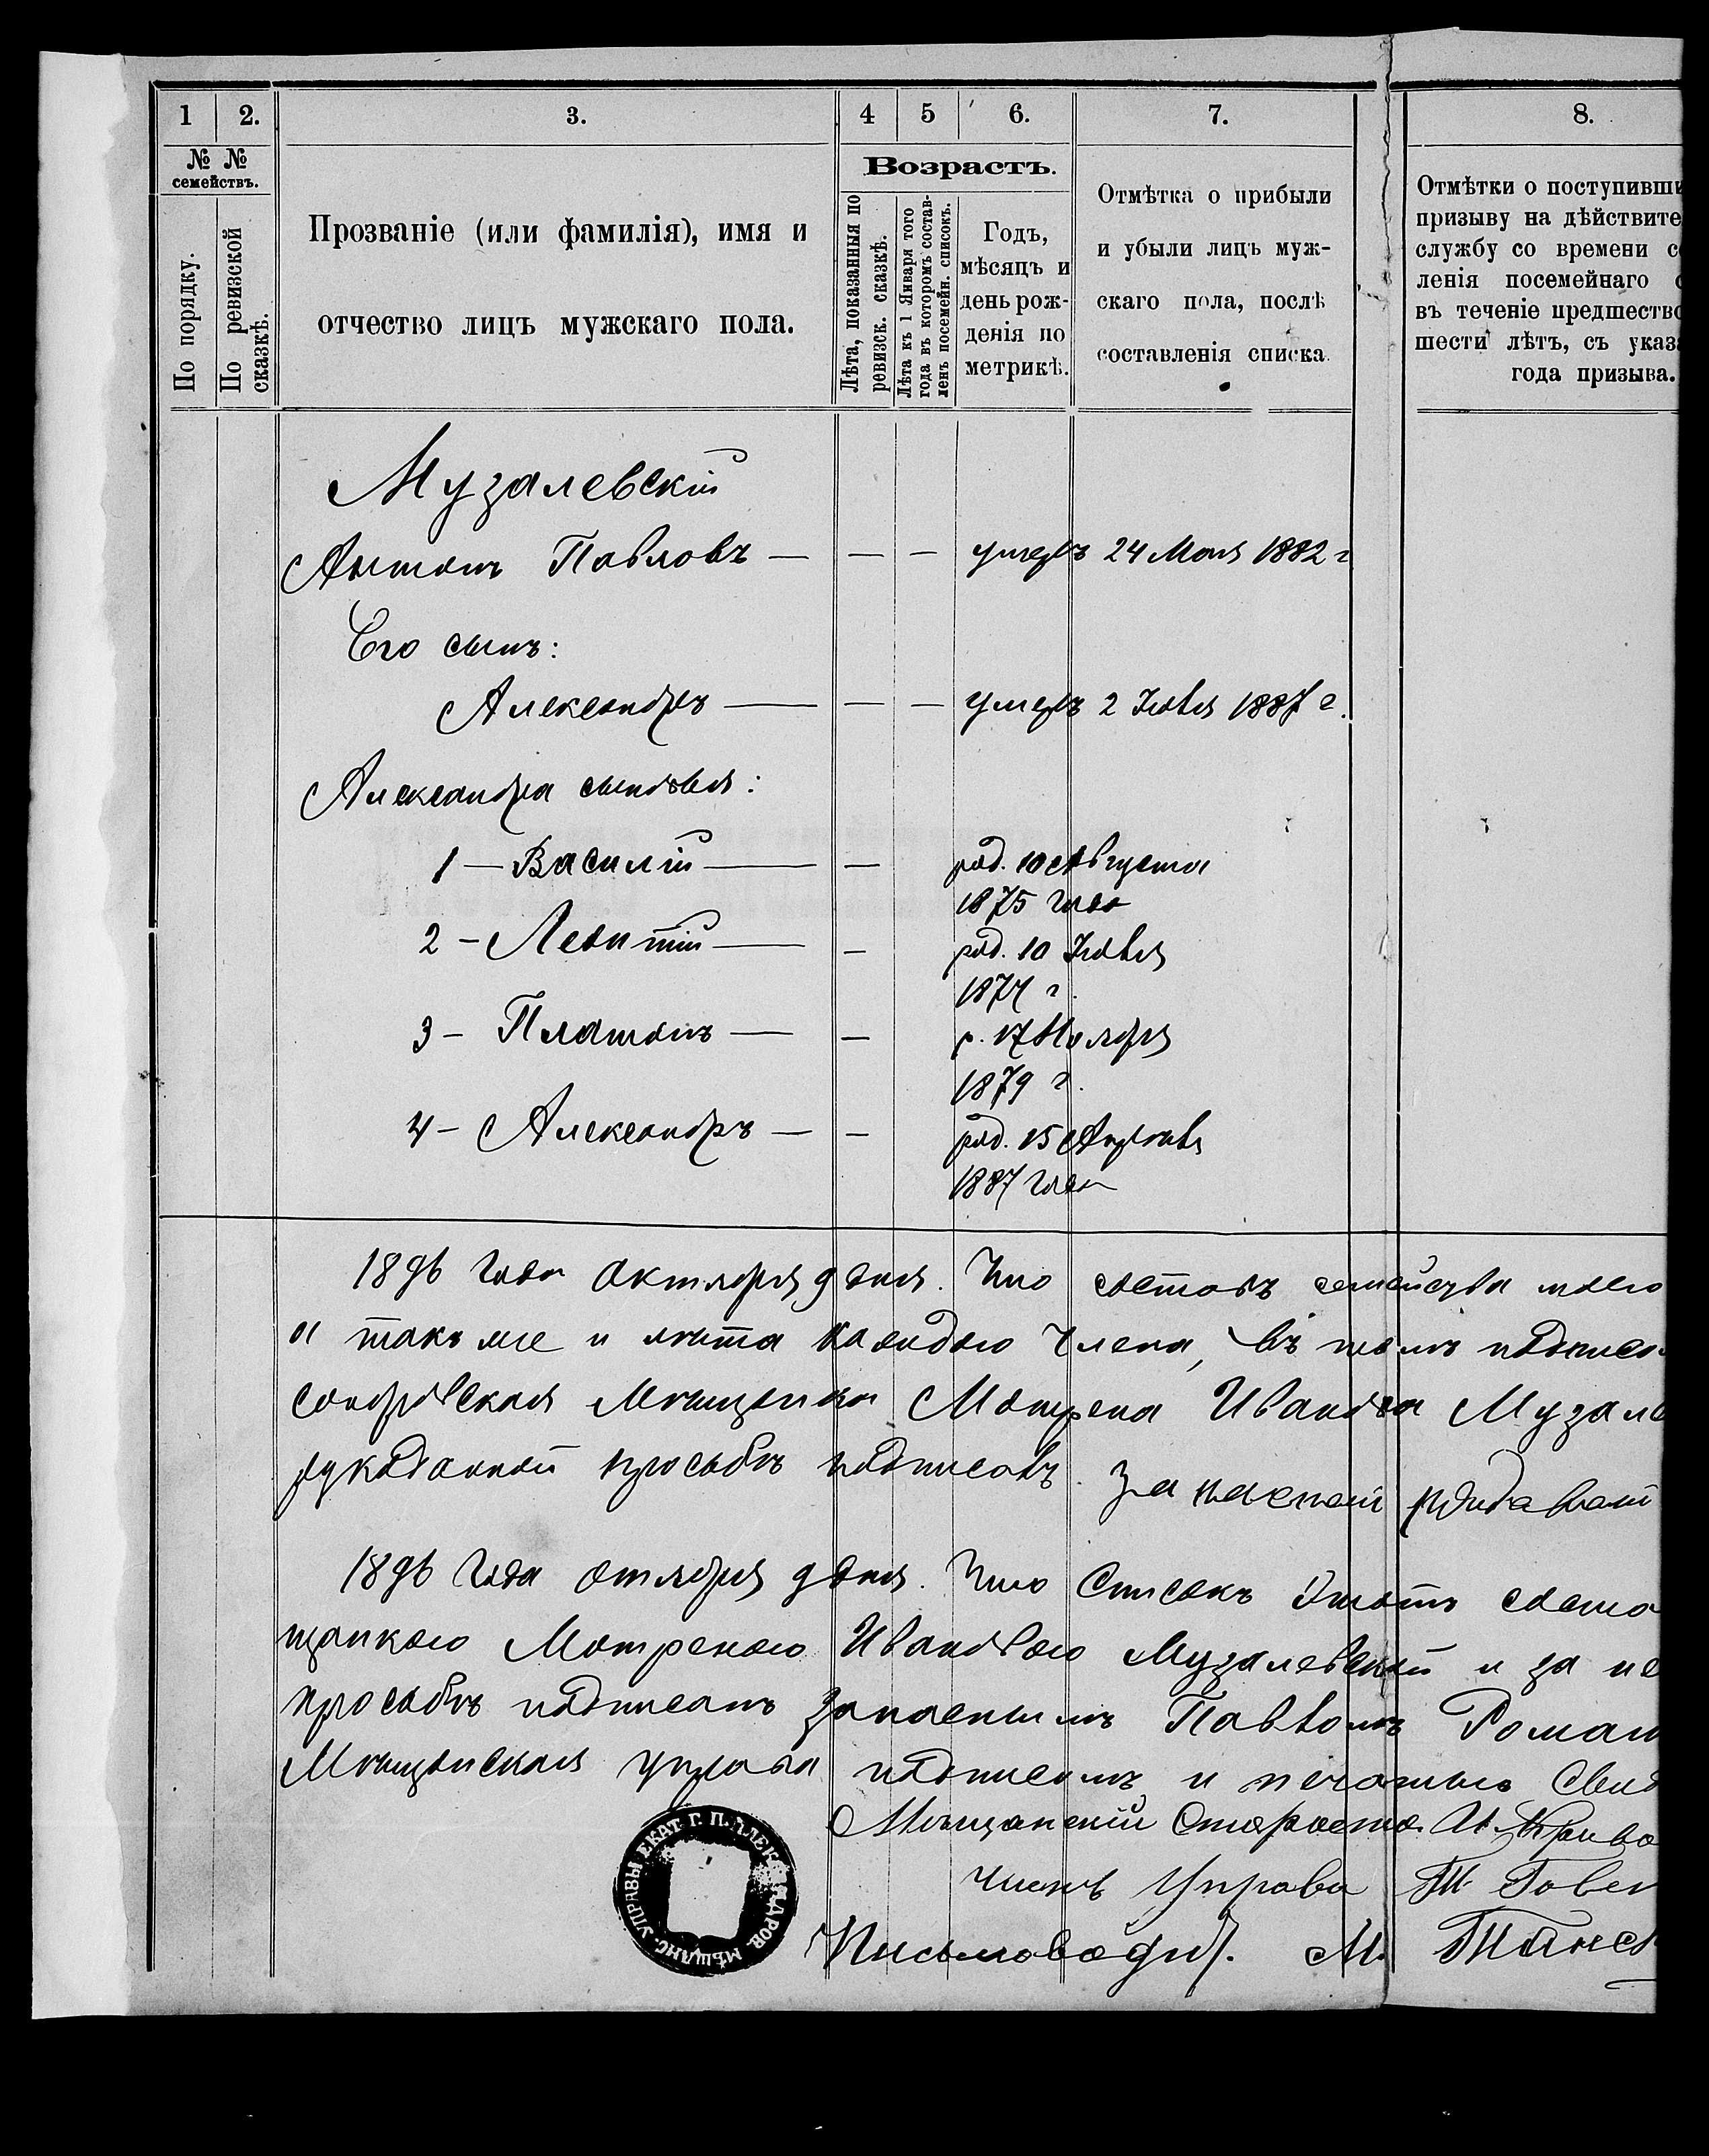 1 2. 3. 4 5 6. 7. 8.
№ № семействъ.
По порядку.
По ревизской сказкѣ.
Прозваніе (или фамилія), имя и
отчество лицъ мужскаго пола.
Возрастъ.
Лѣта, показанныя по
ревизск. сказкѣ.
Лѣта къ 1 Января того
года въ которомъ состав-
ленъ посемейн. списокъ.
Годъ,
мѣсяцъ и
день рож-
денія по
метрикѣ.
Отмѣтка о прибыли
и убыли лицъ муж-
скаго пола, послѣ
составленія списка.
Отмѣтки о поступивши
призыву на дѣйствите
службу со времени с
ленія посемейнаго с
въ теченіе предшество
шести лѣтъ, съ указа
года призыва.
Музалевскій
Антонъ Павловъ — — — умеръ 24 Мая 1882 г
Его сынъ:
Александръ — — — умеръ 2 Іюля 1887 г.
Александра сыновья:
1 — Василій — — род. 10 Августа
1875 года
2 — Леонтій — — род. 10 Іюля
1877 г.
3 — Платонъ — — р. 17 Ноября
1879 г.
4 — Александръ — — род. 15 Апрѣля
1887 года
1896 года Октября 9 дня. Что составъ семейства моего
а также и лѣта каждаго члена, въ томъ подписа
сандровская Мѣщанка Матрена Иванова Музале
рукоданной просьбѣ подписалъ Запасной рядовой
1896 года Октября 9 дня. Что Списокъ этотъ соста
щанкою Матреною Ивановою Музалевской и за не
просьбѣ подписанъ запаснымъ Павломъ Роман
Мѣщанская управа подписомъ и печатью Свид
Мѣщанскій Староста И. Криво
Членъ Управы Т. Говен
Письмоводит. М.
УПРАВЫ ЕКАТ. Г. П. АЛЕКСАНДРОВ. МѢЩАНС.